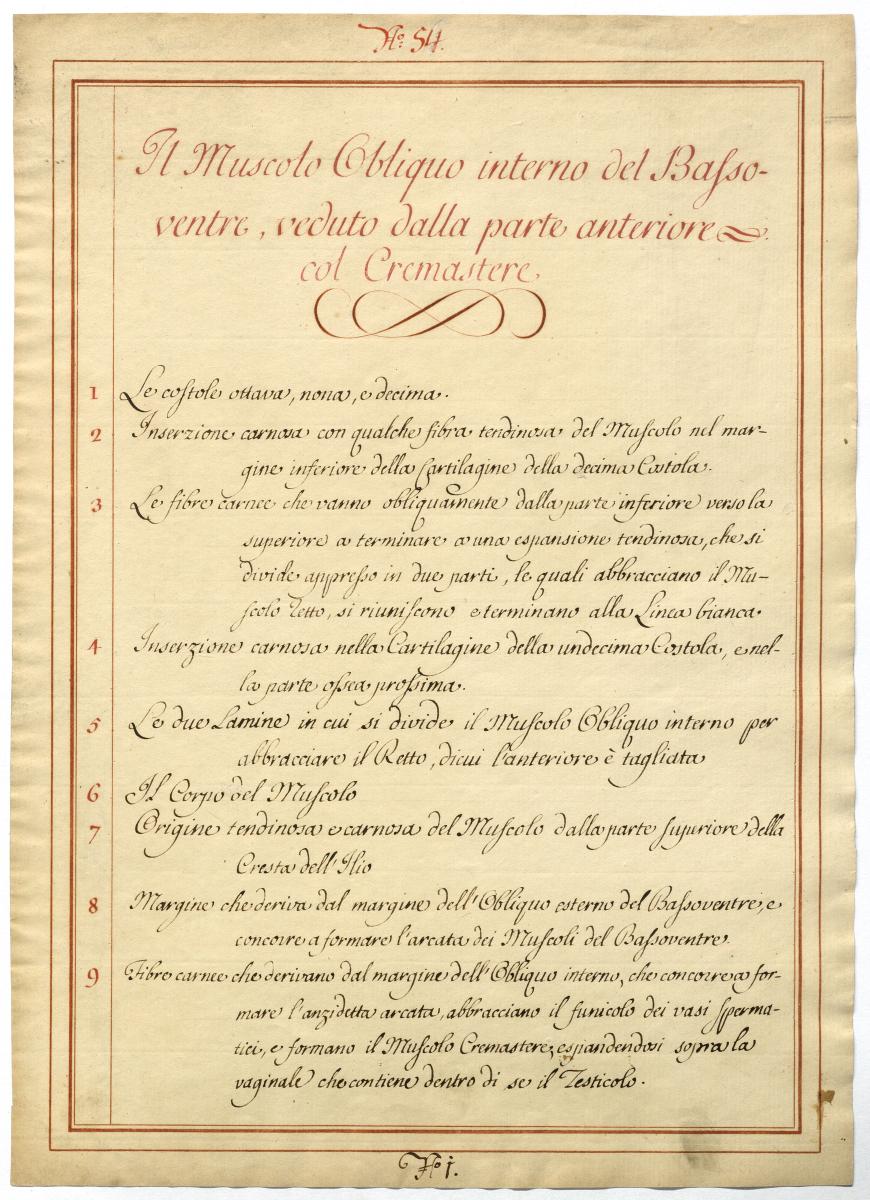 No: 54.
Il Muscolo Obliquo interno del Basso-
ventre, veduto dalla parte anteriore
col Cremastere
1 Le costole ottava, nona, e decima.
2 Inserzione carnosa con qualche fibra tendinosa del Muscolo nel mar-
gine inferiore della Cartilagine della decima Costola.
3 Le fibre carnee che vanno obliquamente dalla parte inferiore verso la
superiore a terminare a una espansione tendinosa, che si
divide appresso in due parti, le quali abbracciano il Mu-
scolo retto, si riuniscono e terminano alla Linea bianca.
4 Inserzione carnosa nella Cartilagine della undecima Costola, e nel-
la parte ossea prossima.
5 Le due Lamine in cui si divide il Muscolo Obliquo interno per
abbracciare il Retto, di cui l'anteriore è tagliata
6 Il Corpo del Muscolo
7 Origine tendinosa e carnosa del Muscolo dalla parte superiore della
Cresta dell'Ilio
8 Margine che deriva dal margine dell'Obliquo esterno del Bassoventre, e
concorre a formare l'arcata dei Muscoli del Bassoventre.
9 Fibre carnee che derivano dal margine dell'Obliquo interno, che concorre a for-
mare l'anzidetta arcata, abbracciano il funicolo dei vasi sperma-
tici, e formano il Muscolo Cremastere, espandendosi sopra la
vaginale che contiene dentro di se il Testicolo.
No 1.